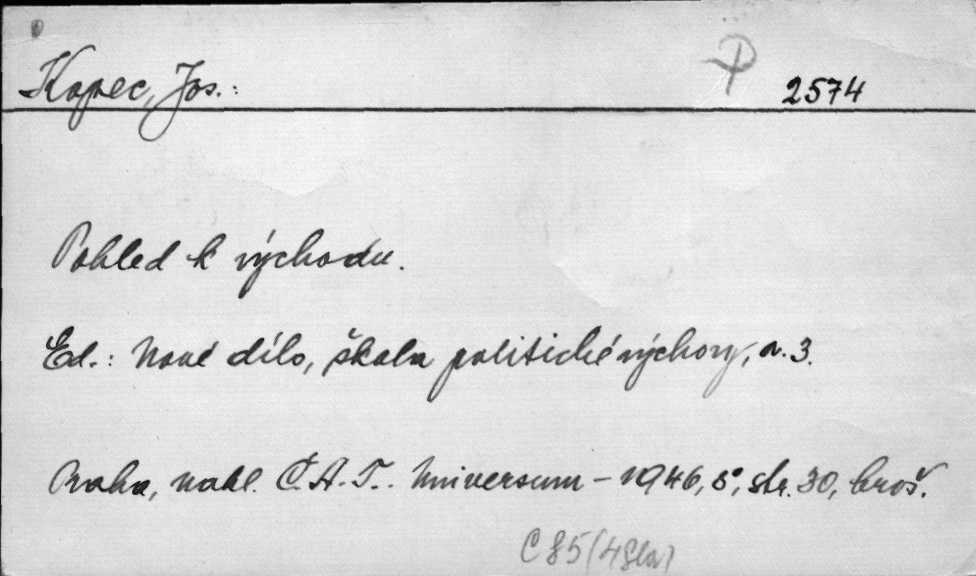 Kopec, Jos.:
P
2574
Pohled k východu.
Ed.: Nové dílo, škola politické výchovy, a. 3.
Praha, nakl. Č.A.T. Universum – 1946, 8°, str. 30, brož.
C 85 (4